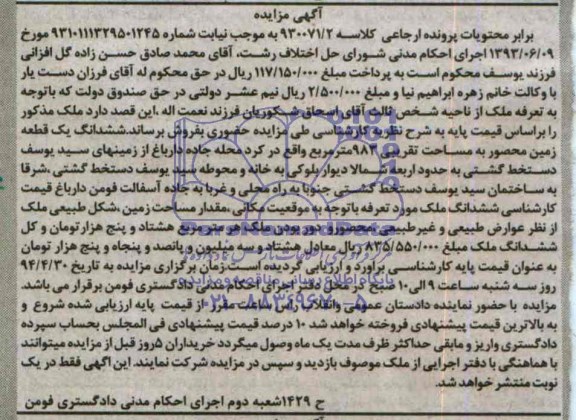 آگهی مزایده
برابر محتویات پرونده ارجاعی کلاسه ۹۳۰۰۷۱/۲ به موجب نیابت شماره ۹۳۱۰۱۱۱۳۲۹۵۰۱۲۴۵ مورخ
۱۳۹۳/۰۶/۰۹ اجرای احکام مدنی شورای حل اختلاف رشت، آقای محمد صادق حسن زاده گل افزانی
فرزند یوسف محکوم است به پرداخت مبلغ ۱۱۷/۱۵۰/۰۰۰ ریال در حق محکوم له آقای فرزان دست یار
با وکالت خانم زهره ابراهیم نیا و مبلغ ۲/۵۰۰/۰۰۰ ریال نیم عشر دولتی در حق صندوق دولت که باتوجه
به تعرفه ملک از ناحیه شخص ثالث آقای اسحاق شکوریان فرزند نعمت اله ،این قصد دارد ملک مذکور
را براساس قیمت پایه به شرح نظریه کارشناسی طی مزایده حضوری بفروش برساند.ششدانگ یک قطعه
زمین محصور به مساحت تقریبی ۹۸۳مترمربع واقع در کرد محله جاده دارباغ از زمینهای سید یوسف
دستخط گشتی به حدود اربعه شمالا دیوار بلوکی به خانه و محوطه سید یوسف دستخط گشتی ،شرقا
به ساختمان سید یوسف دستخط گشتی جنوبا به راه محلی و غربا به جاده آسفالت فومن دارباغ قیمت
کارشناسی ششدانگ ملک مورد تعرفه باتوجه به موقعیت مکانی ،مقدار مساحت زمین ،شکل طبیعی ملک
از نظر عوارض طبیعی و غیرطبیعی محصور و دور بودن ملک هر متر مربع هشتاد و پنج هزارتومان و کل
ششدانگ ملک مبلغ ۸۳۵/۵۵۰/۰۰۰ ریال معادل هشتاد و سه میلیون و پانصد و پنجاه و پنج هزار تومان
به عنوان قیمت پایه کارشناسی برآورد و ارزیابی گردیده است زمان برگزاری مزایده به تاریخ ۹۴/۴/۳۰
روز سه شنبه ساعت ۹ الی۱۰ صبح در دفتر اجرای احکام مدنی دادگستری فومن برقرار می باشد.
مزایده با حضور نماینده دادستان عمومی وانقلاب راس ساعت مقرر از قیمت پایه ارزیابی شده شروع و
به بالاترین قیمت پیشنهادی فروخته خواهد شد ۱۰ درصد قیمت پیشنهادی فی المجلس بحساب سپرده
دادگستری واریز و مابقی حداکثر ظرف مدت یک ماه وصول میگردد خریداران ۵روز قبل از مزایده میتوانند
با هماهنگی با دفتر اجرایی از ملک موصوف بازدید و سپس در مزایده شرکت نمایند. این اگهی فقط در یک
نوبت منتشر خواهد شد.
ح ۱۴۲۹شعبه دوم اجرای احکام مدنی دادگستری فومن